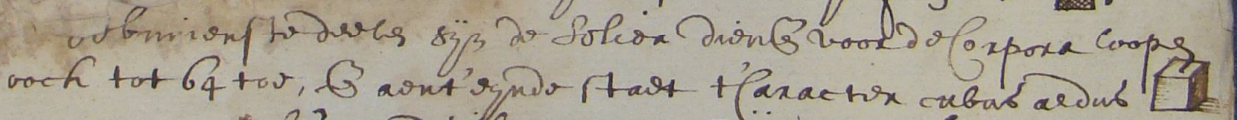 deelen zijn de Solien dienen voor de Corpora loopen
ooch tot 64 toe, en aent'eynde staet t'Caracter cubus aldus